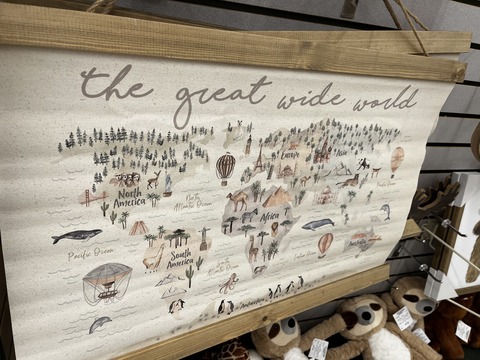 the great wide world
Europe
Asia
North
America
North
Atlantic Ocean
Africa
Pacific Ocean
South
America
Indian Ocean
Australia
Antarctica